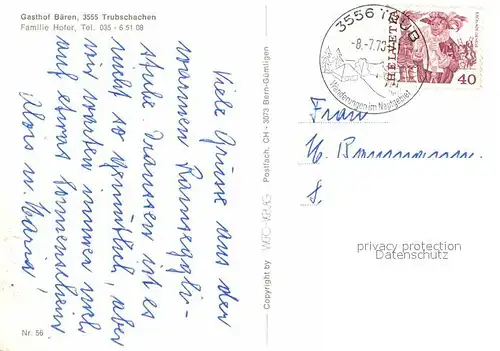 Gasthof Bären, 3555 Trubschachen
Familie Hofer, Tel. 035 - 6 51 08
Viele Grüsse aus der
warmen Ramseggli-
stube. Draussen ist es
nicht so gemütlich, aber
wir warten immer noch
auf etwas Sonnenschein
Alois u. Maria!
Nr. 56
Copyright by
Postfach, CH - 3073 Bern-Gümligen
3556 TRUB
-8.-7.7
Wanderungen im Napfgebiet
HELVETIA
40
Frau
privacy protection
Datenschutz